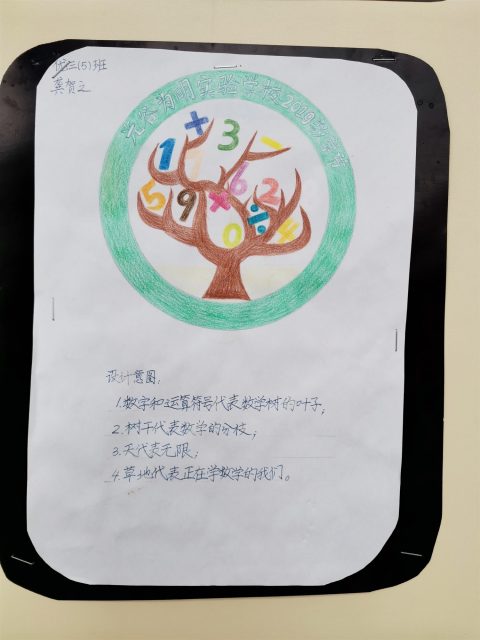 三(5)班
龚贺之
光谷为明实验学校2019数学节
+ 3 −
1 7 6
5 9 × 2
0 ÷ 4
设计意图：
1.数字和运算符号代表数学树的叶子；
2.树干代表数学的分枝；
3.天代表无限；
4.草地代表正在学数学的我们。